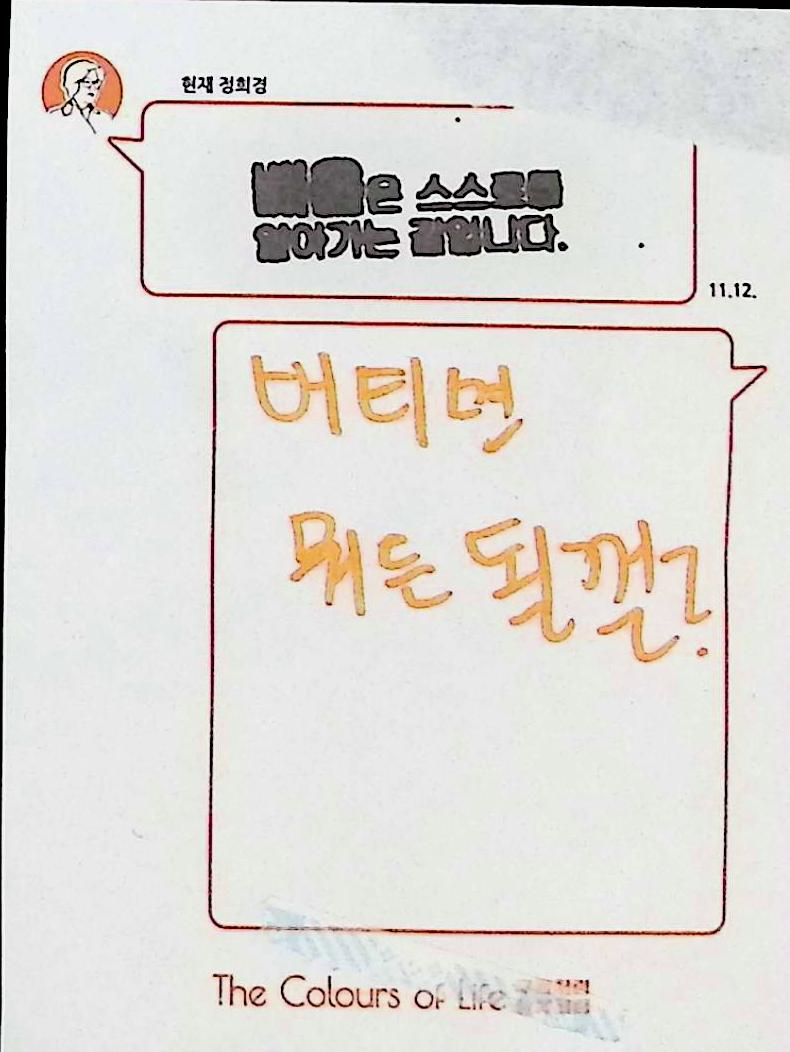 현재 정희경
배움은 스스로를
알아가는 길입니다.
11.12.
버티면
뭐든 될껄?
The Colours of Life